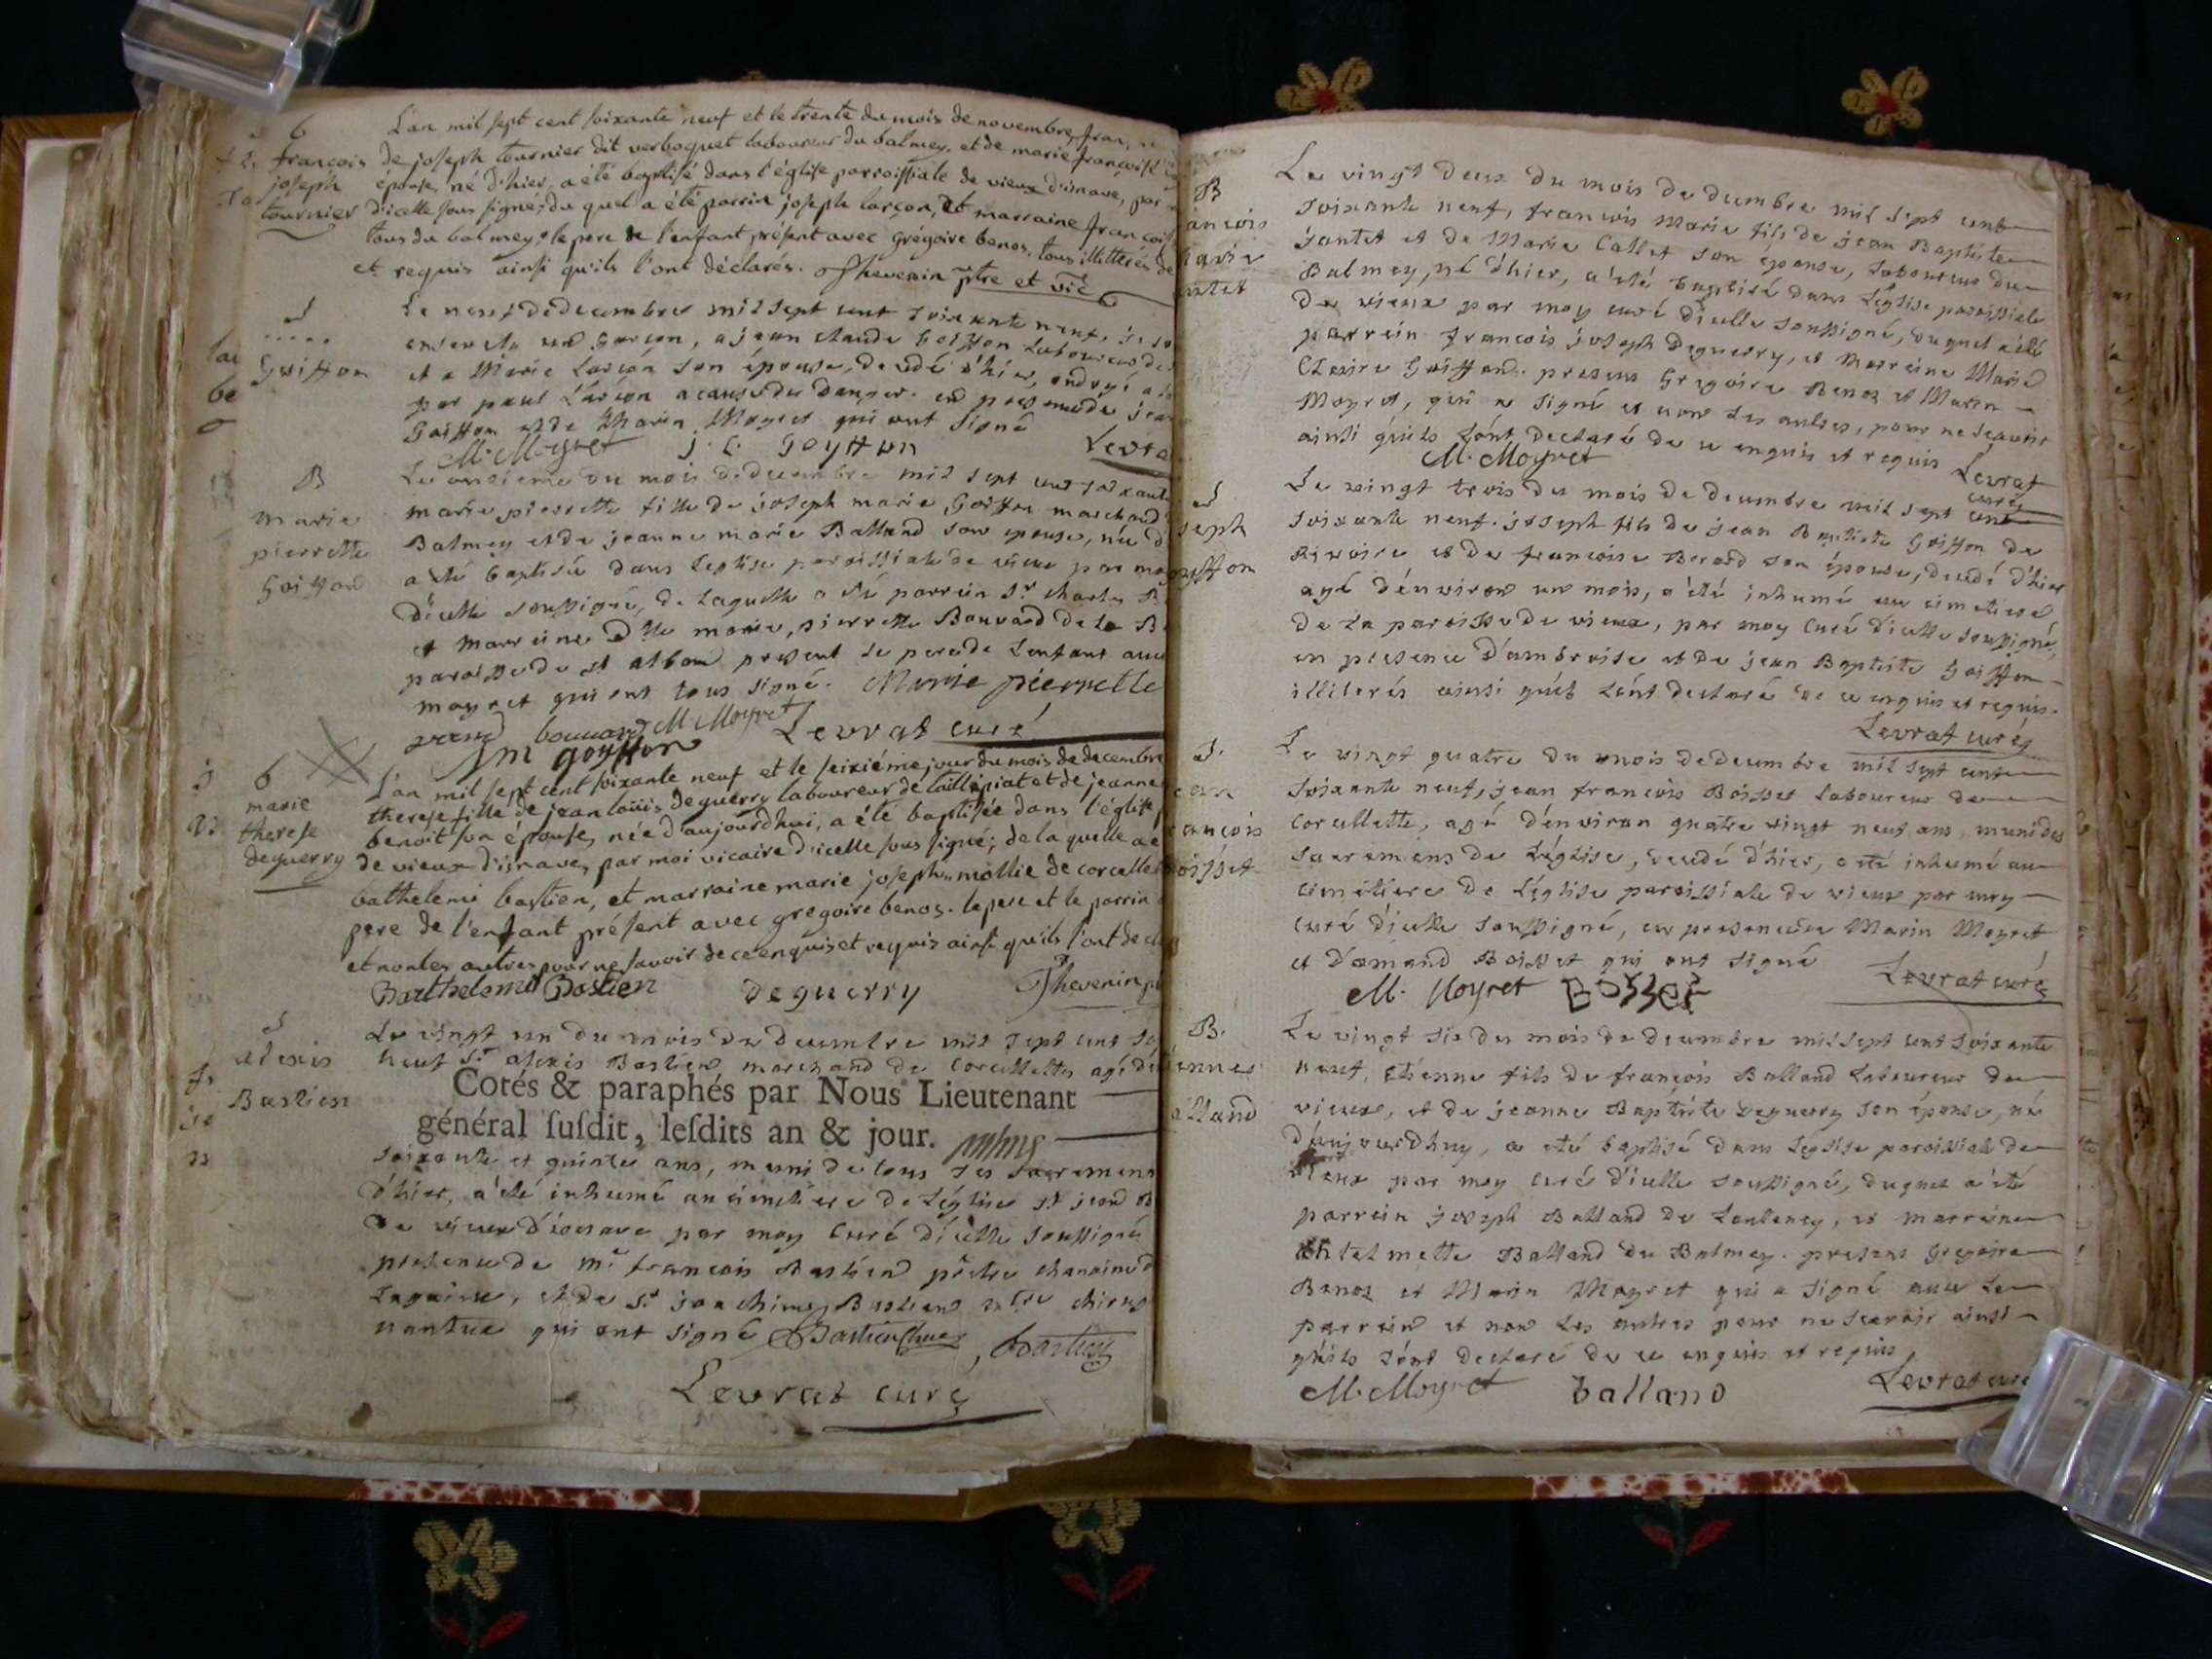 b
françois
joseph
tournier
L'an mil sept cent soixante neuf et le trente du mois de novembre, fran
de joseph tournier dit verboquet laboureur du balmey, et de marie françoise
épouse, né d'hier, a été baptisé dans l'église parroissiale de vieux d'isnave, par
d'icelle sous signé, du quel a été parrin joseph larçon, et marraine françoise
tous du balmey, le pere de l'enfant présent avec Grégoire benos, tous illitterés de
et requis ainsi qu'ils l'ont déclarés. Thevenin ptre et vic
S
Goiffon
Le neuf de decembre mil sept cent soixante neuf, je so
enseveli un Garçon, a jean claude Goiffon Laboureur de
et a Marie Larçon son épouse, decedé d'hier, ondoyé a
par paul Larçon a cause du danger. en presence de jean
Goiffon et de Marin Moyret qui ont signé
M. Moyret J. C. Goyffon Levra
B
marie
pierrette
Goiffond
Le onzieme du mois de decembre mil sept cent soixante
marie pierrette fille de joseph marie Goiffon marchand
Balmey et de jeanne marie Balland son epouse, née d
a été baptisée dans l'eglise paroissiale de vieux par moy
d'icelle soussigné, de laquelle a été parrein Sr charles B
et marreine Dlle marie, pierrette Bouvard de la B
paroisse de st alban present le pere de l'enfant avec
moyret qui ont tous signé. Marie pierrette
bouvard M. Moyret Levrat curé
Jm goyffon
b
marie
therese
deguerry
L'an mil sept cent soixante neuf et le seiziéme jour du mois de decembre
therese fille de jean loüis deguerry laboureur de taillepiat et de jeanne
benoit son épouse, née d'aujourdhui, a été baptisée dans l'église
de vieux d'isnave, par moi vicaire d'icelle sous signé; de la quelle a é
bathelemi bastien, et marraine marie joseph mollie de corcelle
pere de l'enfant présent avec gregoire benos. le pere et le parrin
et non les autres pour ne savoir de ce enquis et requis ainsi qu'ils l'ont de cl
Barthelemi Bastien deguerry Thevenin p
S
alexis
Bastien
Le vingt un du mois de decembre mil sept cent so
neuf Sr alexis Bastien marchand de Corcellette agé d
Cotés & paraphés par Nous Lieutenant
général susdit, lesdits an & jour.
soixante et quinze ans, muni de tous ses sacremens
d'hier, a été inhumé au cimetiere de L'église st jean B
de vieux d'isenave par moy Curé d'icelle soussigné
presence de mre françois Bastien pretre chanoine d
et de Sr joachim Bastien
nantua qui ont signé Bastien Bastien
Levrat curé
B
ançois
marie
antet
Le vingt deux du mois de decembre mil sept cent
soixante neuf, francois Marie fils de jean Baptiste
jantet et de Marie Callet son épouse, laboureur du
Balmey, né d'hier, a été baptisé dans L'église paroissiale
de vieux par moy curé d'icelle soussigné, duquel a été
parrein francois joseph Deguerry, et Marreine Marie
Claire Goiffond. presens Gregoire Benoz et Marin
Moyret, qui a signé et non les autres, pour ne scavoir
ainsi qu'ils L'ont declaré de ce enquis et requis
M. Moyret Levrat curé
S
seph
oyffon
Le vingt trois du mois de decembre mil sept cent
soixante neuf. joseph fils de jean Baptiste Goiffon de
Rivoire et de francoise Berard son épouse, decedé d'hier
agé d'environ un mois, a été inhumé au cimetiere
de La paroisse de vieux, par moy Curé d'icelle soussigné,
en presence d'ambroise et de jean Baptiste Goiffon
illiterés ainsi qu'ils L'ont declaré de ce enquis et requis.
Levrat curé
S.
ean
rancois
oisset
Le vingt quatre du mois de decembre mil sept cent
soixante neuf, jean francois Boisset Laboureur de
Corcellette, agé d'environ quatre vingt neuf ans, muni des
sacremens de L'église, decedé d'hier, a été inhumé au
cimetiere de L'église paroissiale de vieux par moy
curé d'icelle soussigné, en presence de Marin Moyret
et d'amand Boisset qui ont signé
M. Moyret Boisset Levrat curé
B.
ienne
alland
Le vingt six du mois de decembre mil sept cent soixante
neuf, Etienne fils de françois Balland Laboureur de
vieux, et de jeanne Baptiste Deguerry son épouse, né
d'aujourdhuy, a été baptisé dans L'église paroissiale de
vieux par moy curé d'icelle soussigné, duquel a été
parrein joseph Balland de Lantenay, et marreine
Balland du Balmey. presens Gregoire
Benoz et Marin Moyret qui a signé avec Le
parrein et non Les autres pour ne scavoir ainsi
qu'ils L'ont declaré de ce enquis et requis
M. Moyret balland Levrat curé